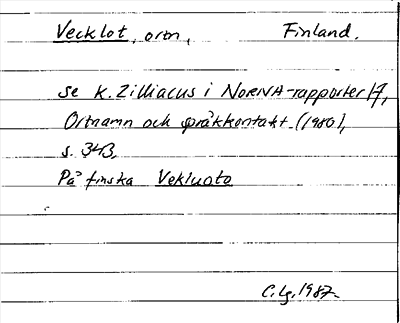 Vecklot, ortn, Finland.
se K. Zilliacus i NORNA-rapporter 17,
Ortnamn och språkkontakt (1980),
s. 343,
På finska Vekluoto
C.Lg. 1987.